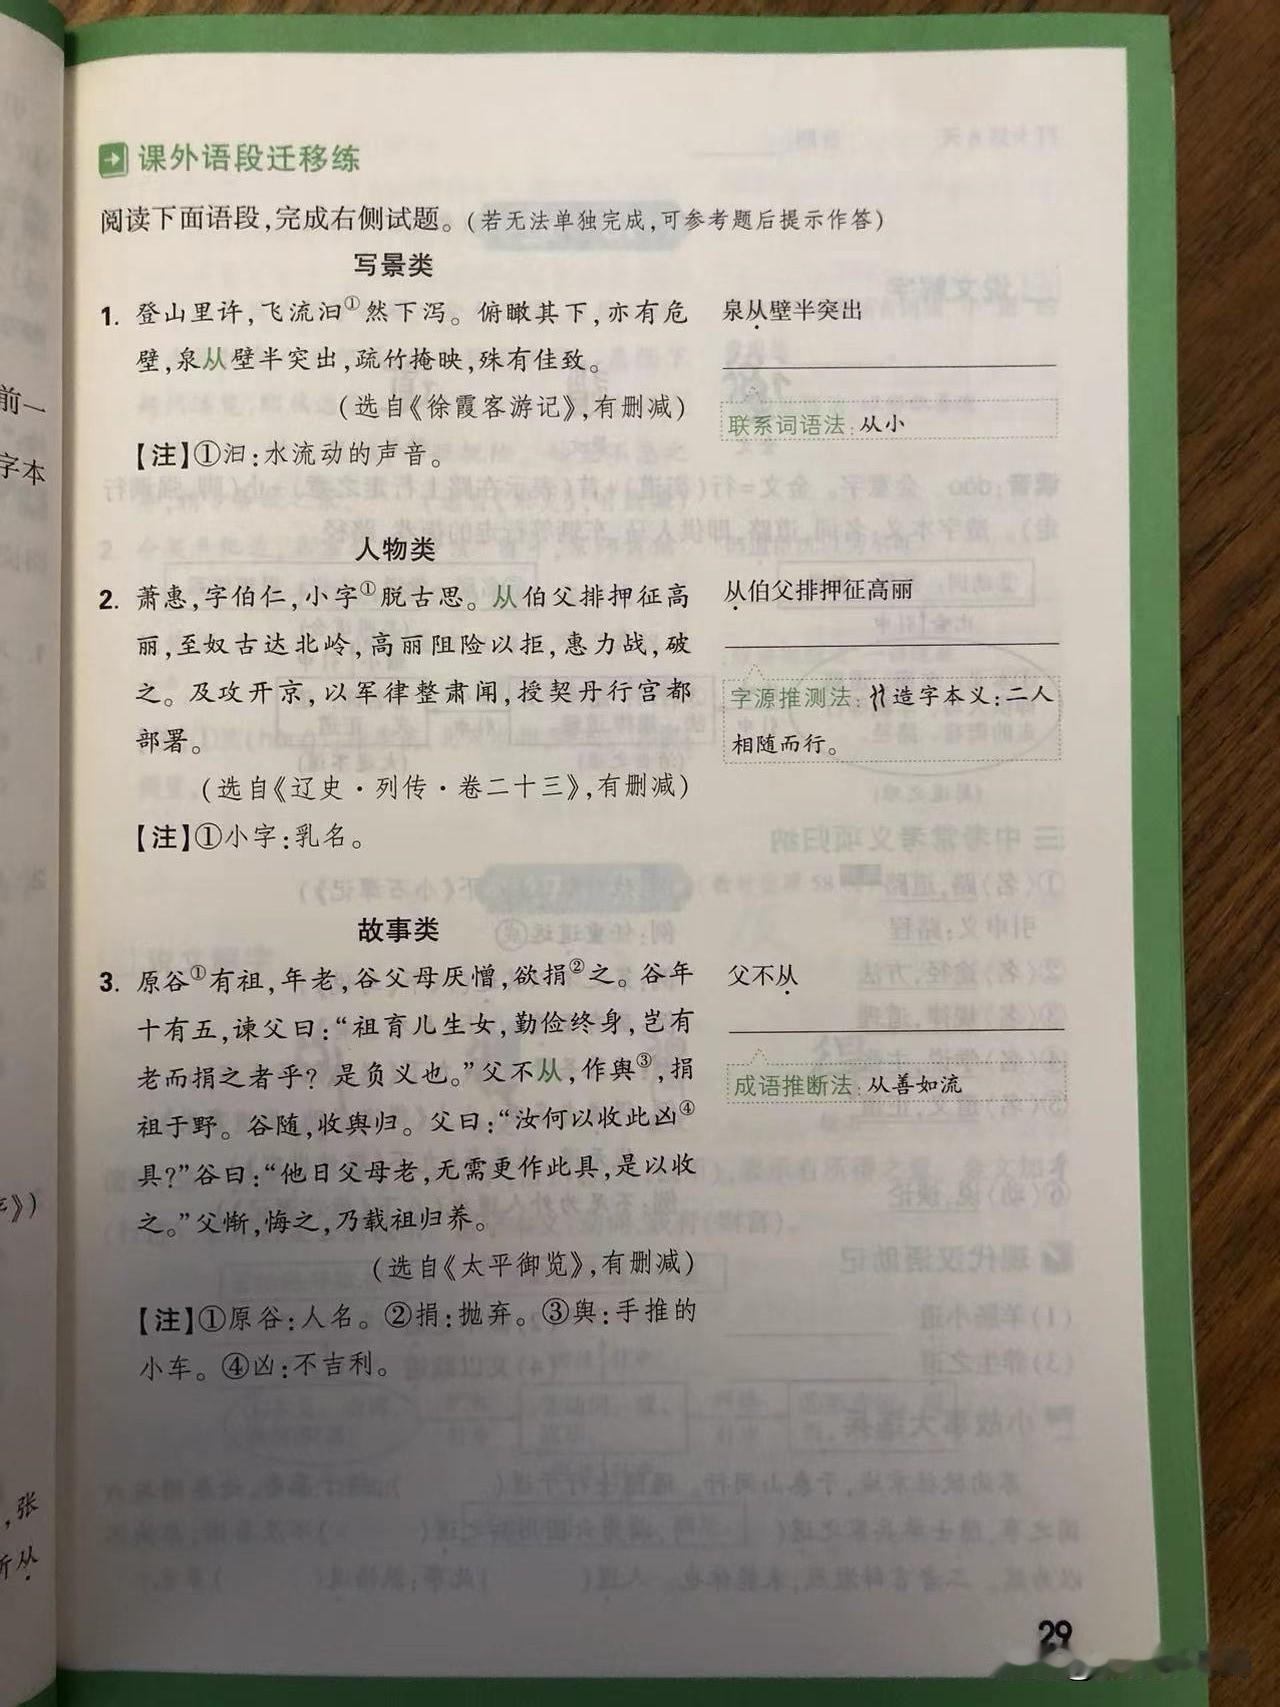 课外语段迁移练
阅读下面语段,完成右侧试题。(若无法单独完成,可参考题后提示作答)
写景类
1. 登山里许,飞流汩①然下泻。俯瞰其下,亦有危
壁,泉从壁半突出,疏竹掩映,殊有佳致。
(选自《徐霞客游记》,有删减)
【注】①汩:水流动的声音。
泉从壁半突出
联系词语法:从小
人物类
2. 萧惠,字伯仁,小字①脱古思。从伯父排押征高
丽,至奴古达北岭,高丽阻险以拒,惠力战,破
之。及攻开京,以军律整肃闻,授契丹行宫都
部署。
(选自《辽史·列传·卷二十三》,有删减)
【注】①小字:乳名。
从伯父排押征高丽
字源推测法:造字本义:二人
相随而行。
故事类
3. 原谷①有祖,年老,谷父母厌憎,欲捐②之。谷年
十有五,谏父曰:“祖育儿生女,勤俭终身,岂有
老而捐之者乎?是负义也。”父不从,作舆③,捐
祖于野。谷随,收舆归。父曰:“汝何以收此凶④
具?”谷曰:“他日父母老,无需更作此具,是以收
之。”父惭,悔之,乃载祖归养。
(选自《太平御览》,有删减)
【注】①原谷:人名。②捐:抛弃。③舆:手推的
小车。④凶:不吉利。
父不从
成语推断法:从善如流
29
前一
字本
》)
,张
所从